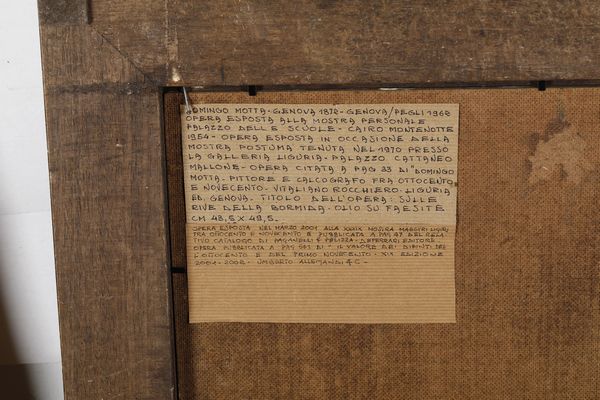 DOMINGO MOTTA - GENOVA 1872 - GENOVA/PEGLI 1962
OPERA ESPOSTA ALLA MOSTRA PERSONALE
PALAZZO DELLE SCUOLE - CAIRO MONTENOTTE
1954 - OPERA ESPOSTA IN OCCASIONE DELLA
MOSTRA POSTUMA TENUTA NEL 1970 PRESSO
LA GALLERIA LIGURIA - PALAZZO CATTANEO
MALLONE - OPERA CITATA A PAG 33 DI "DOMINGO
MOTTA - PITTORE E CALCOGRAFO FRA OTTOCENTO
E NOVECENTO - VITALIANO ROCCHIERO - LIGURIA
ED. GENOVA. TITOLO DELL'OPERA: SULLE
RIVE DELLA BORMIDA - OLIO SU FAESITE
CM 48,5 X 49,5.
OPERA ESPOSTA NEL MARZO 2001 ALLA XXXIX MOSTRA MAESTRI LIGURI
TRA OTTOCENTO E NOVECENTO E PUBBLICATA A PAG 47 DEL RELA
TIVO CATALOGO DI PAGANELLI & PALIZZA - DEFERRARI EDITORE
OPERA PUBBLICATA A PAG 561 DI - IL VALORE DEI DIPINTI DEL
L'OTTOCENTO E DEL PRIMO NOVECENTO - XIX EDIZIONE
2001 - 2002 - UMBERTO ALLEMANDI & C -